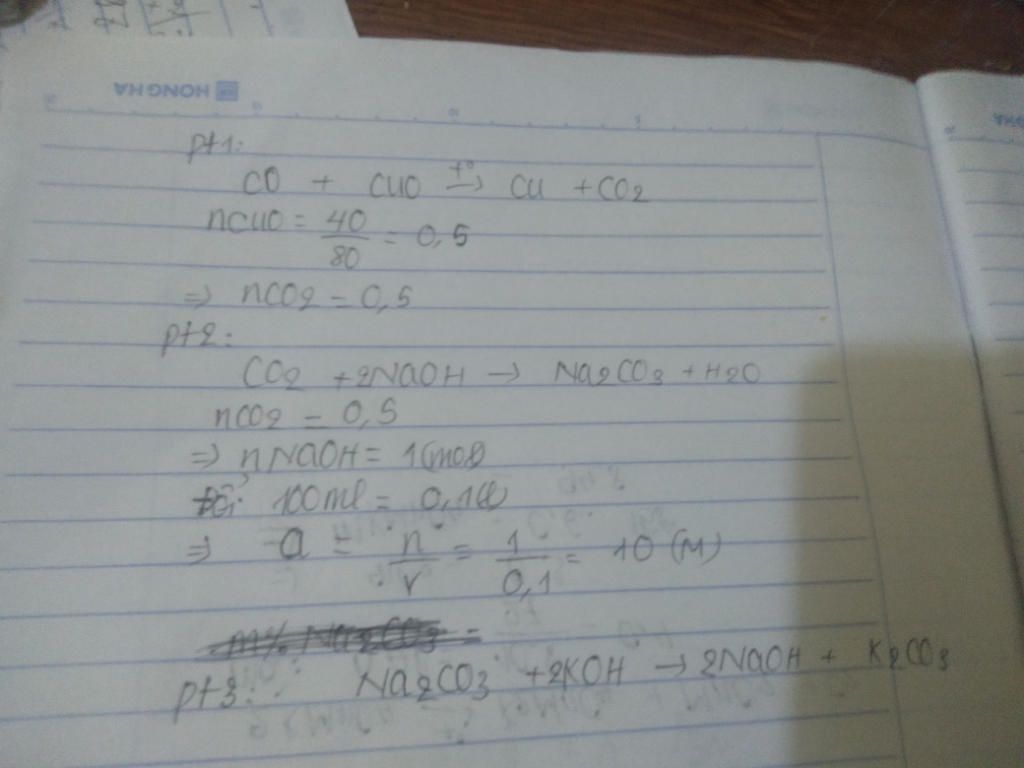 HONG HA
pt1:
CO + CuO t°→ Cu + CO2
nCuO = 40/80 = 0,5
=> nCO2 = 0,5
pt2:
CO2 + 2NaOH → Na2CO3 + H2O
nCO2 = 0,5
=> nNaOH = 1(mol)
Đổi: 100ml = 0,1(l)
=> a = n/V = 1/0,1 = 10 (M)
m% Na2CO3 =
pt3: Na2CO3 + 2KOH → 2NaOH + K2CO3